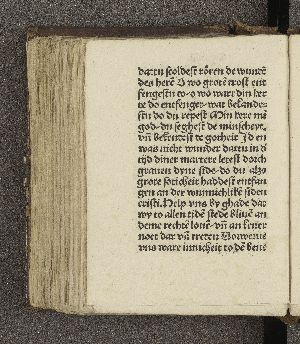 darin scoldest rören de wunde
des heren O wo grote trost ent
fengestu to o wo wart din her
te do entfenget wat bekande
stu do du repest Min here mi
god du seghest de minscheyt
vñ bekentest de gotheit Id en
was nicht wunder dattu in d
tijd diner martere lerest dorch
grauen dyne side do du also
grote soticheit haddest entfan
gen an der wunnichliken siden
cristi Help vns by ghade dat
wy to allen tidē stede bliuē an
deme rechte louē vñ an lester
noet dat vñ treten Vorwerue
vns ware innicheit to dē bene